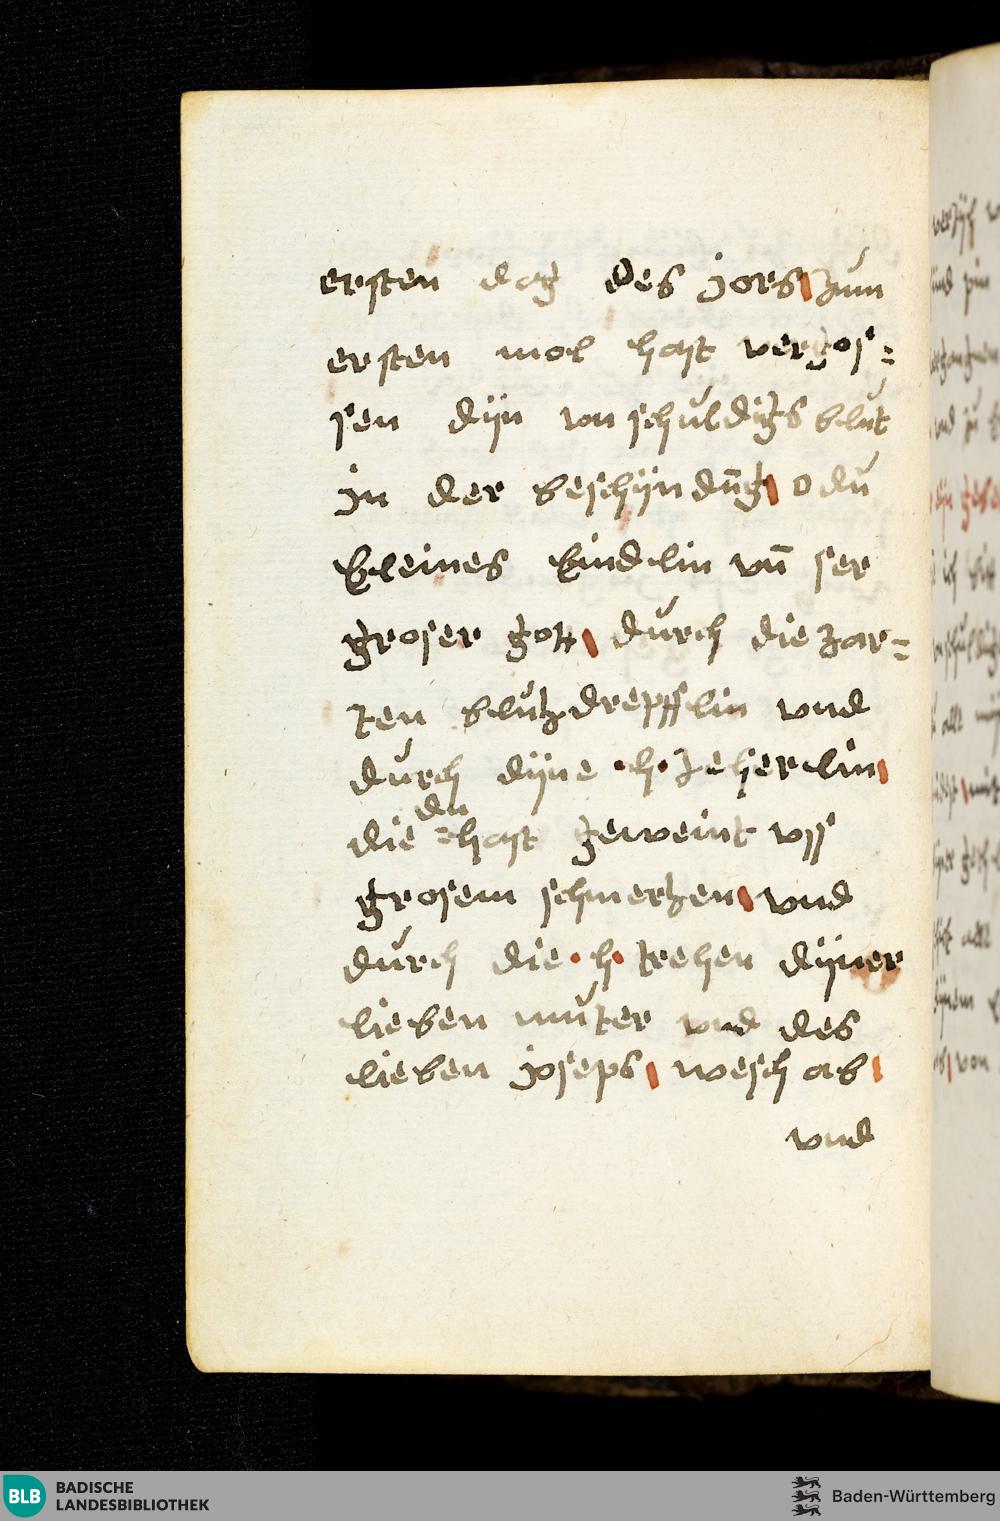 ersten dag des jors zum
ersten mol hast vergos=
sen dijn vnschuldigs blůt
jn der beschijndūg o du
kleines kindlin vn̄ ser
groser gott durch die zar=
ten blůtzdrepfflin vnd
durch dijne ·h· zeherlin
die du hast geweint vss
grosem schmertzen vnd
durch die ·h· trehen dijner
lieben můter vnd des
lieben joseps wesch ab
vnd
BLB BADISCHE
LANDESBIBLIOTHEK
Baden-Württemberg